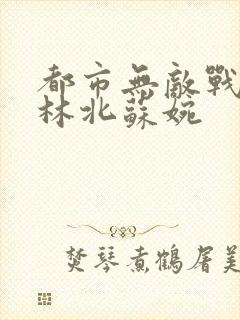 都市無敵戰
林北蘇婉
焚琴煮鶴屠美